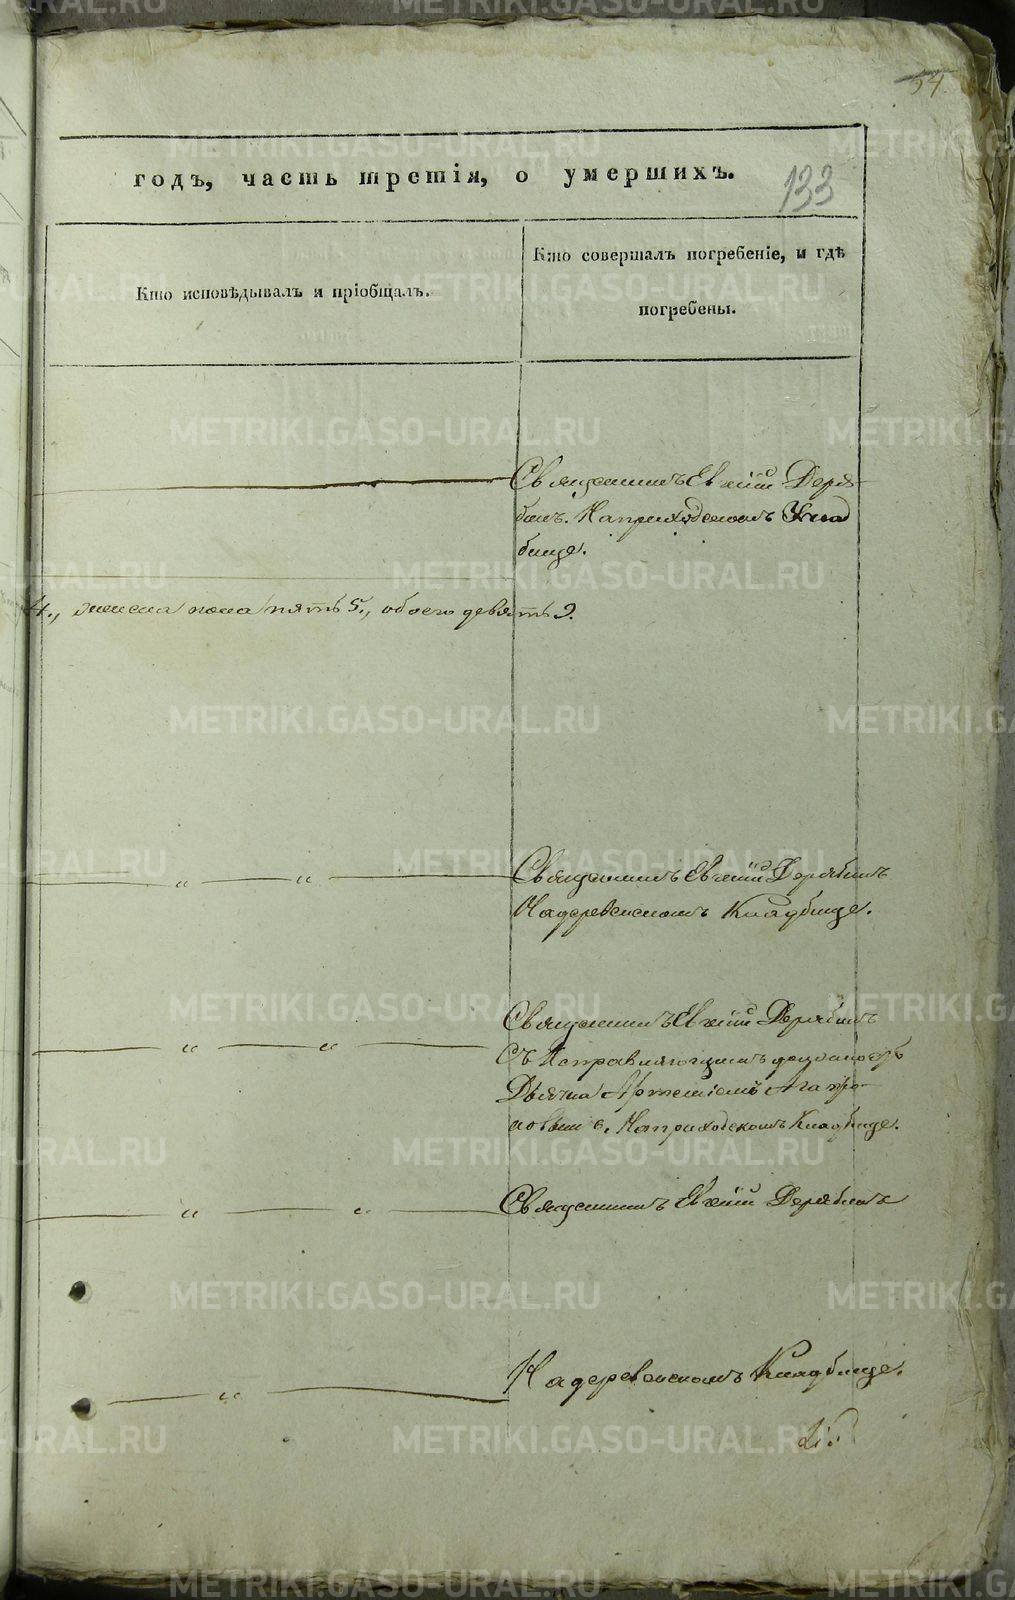 54
годъ, часть третія, о умершихъ.
133
Кто исповѣдывалъ и пріобщалъ.
Кто совершалъ погребеніе, и гдѣ
погребены.
Священникъ Евѳимій Деря-
бинъ. На приходскомъ Клад
бище.
4., женска пола пять 5., обоего девять 9.
Священникъ Евѳимій Дерябинъ
На деревенскомъ Кладбище.
Священникъ Евѳимій Дерябинъ
Съ Исправляющимъ должность
Дьячка Артеміемъ Агапо-
новым. На приходскомъ Кладбище.
Священникъ Евѳимій Дерябинъ
На деревенскомъ Кладбище.
METRIKI.GASO-URAL.RU